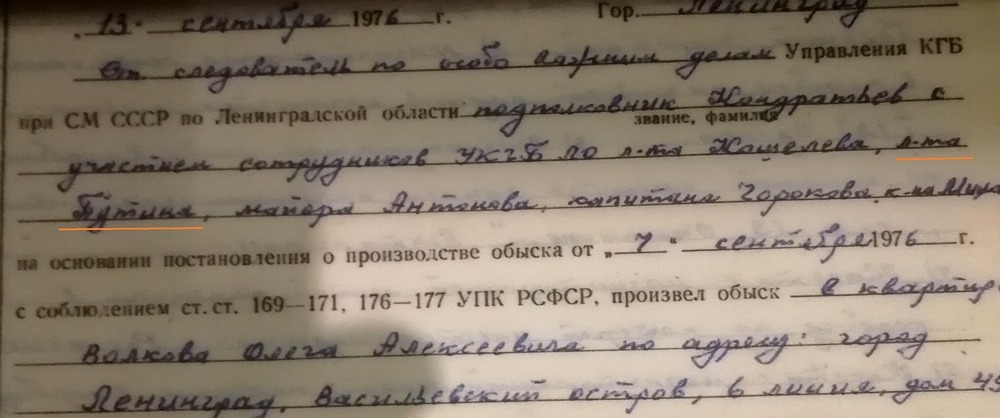 „13" сентября 1976 г. Гор. Ленинград
Ст. следователь по особо важным делам Управления КГБ
при СМ СССР по Ленинградской области подполковник Кондратьев с
звание, фамилия
участием сотрудников УКГБ ЛО л-та Кошелева, л-та
Путина, майора Антонова, капитана Горохова, к-на
на основании постановления о производстве обыска от „7" сентября 1976 г.
с соблюдением ст. ст. 169—171, 176—177 УПК РСФСР, произвел обыск в квартир
Волкова Олега Алексеевича по адресу: город
Ленинград, Васильевский остров, 6 линия, дом